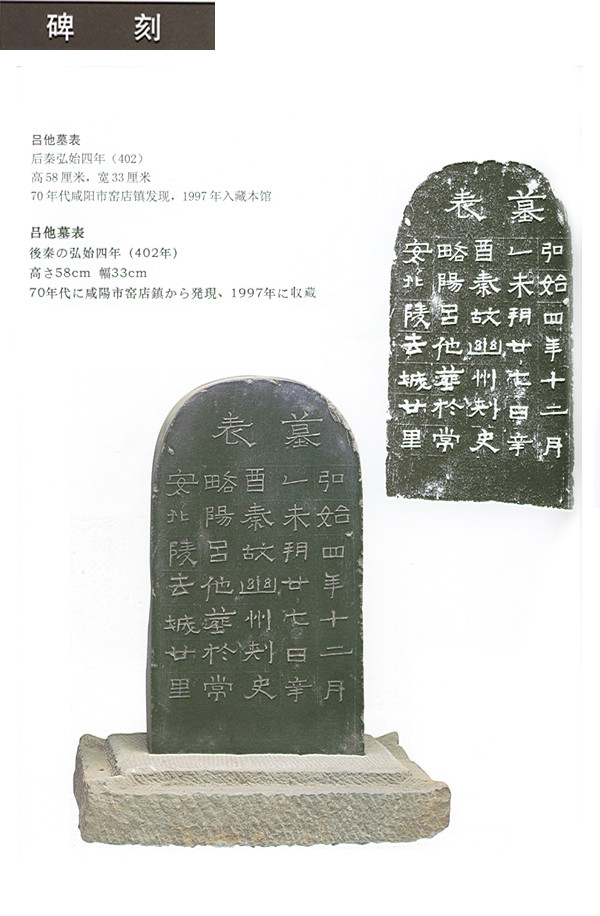 碑 刻
吕他墓表
后秦弘始四年（402）
高58厘米，宽33厘米
70年代咸阳市窑店镇发现，1997年入藏本馆
吕他墓表
後秦の弘始四年（402年）
高さ58cm 幅33cm
70年代に咸陽市窑店鎮から発現、1997年に収蔵
墓表
弘始四年十二月
乙未朔廿七日辛
酉秦故幽州刾史
略陽呂他葬於常
安北陵去城廿里
墓表
弘始四年十二月
乙未朔廿七日辛
酉秦故幽州刾史
略陽呂他葬於常
安北陵去城廿里